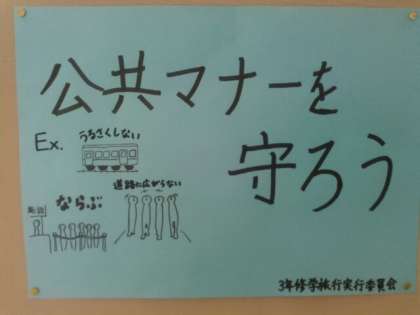 公共マナーを
守ろう
Ex.
うるさくしない
道路に広がらない
ならぶ
3年修学旅行実行委員会